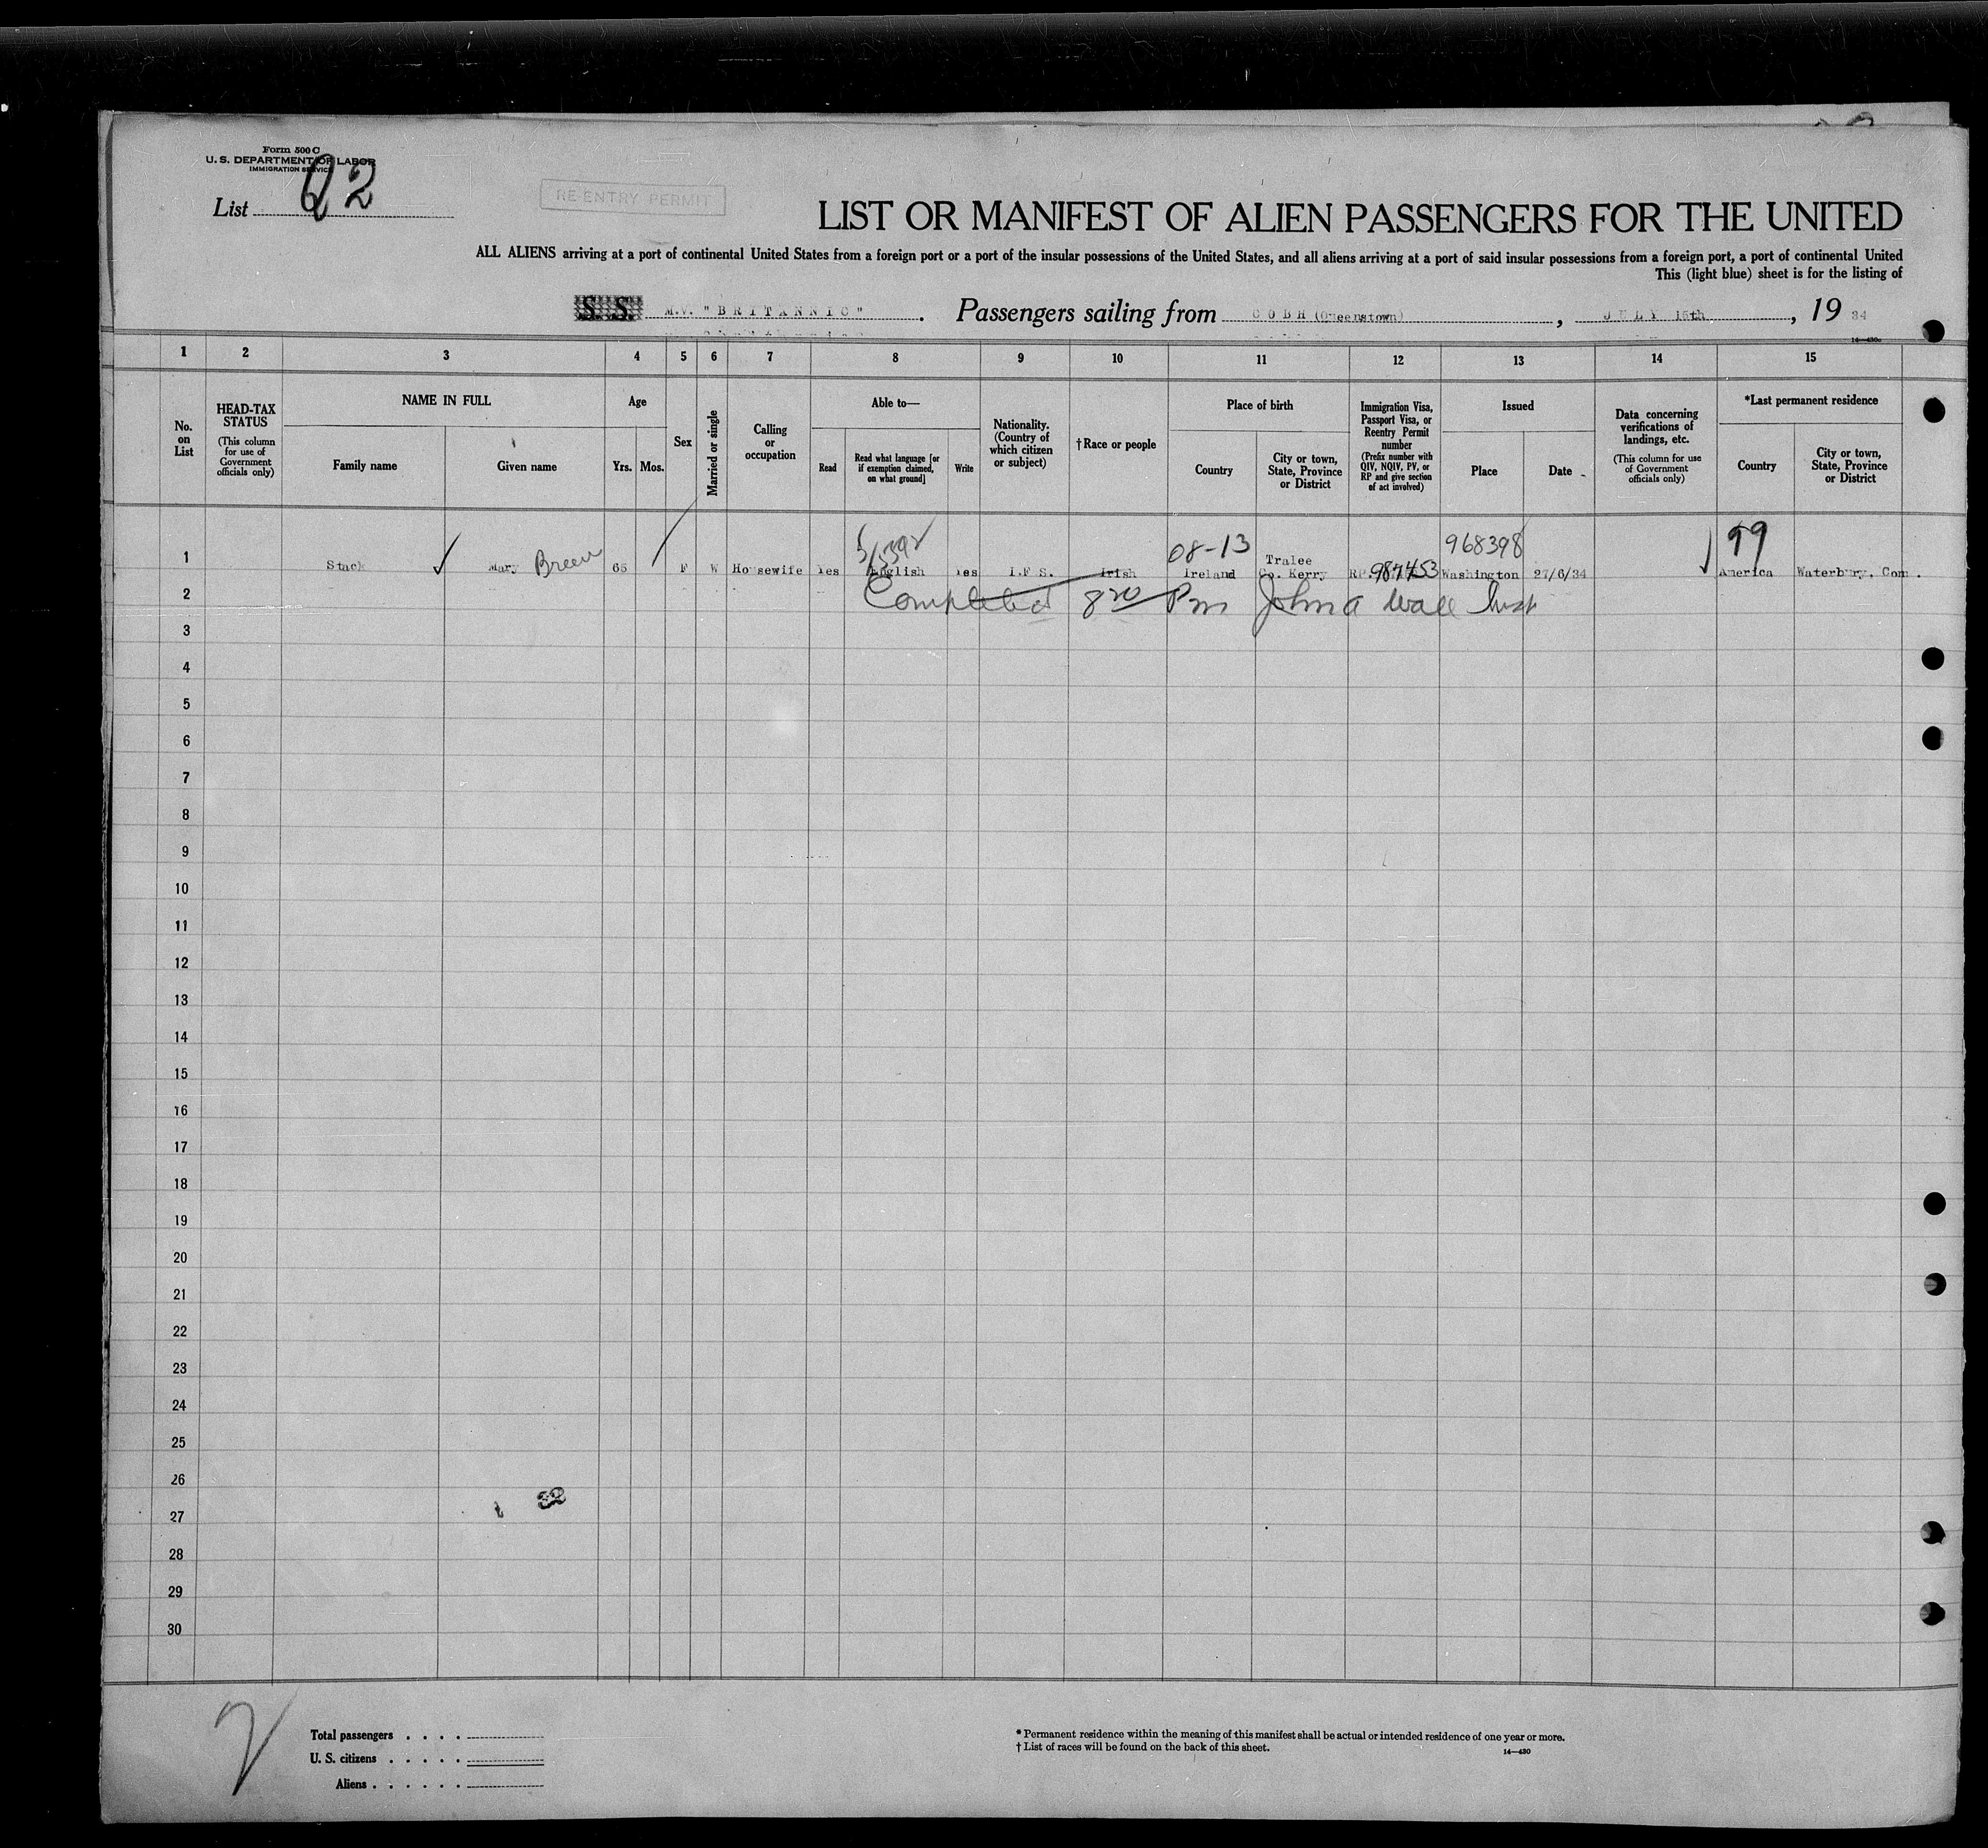 Form 500 C
U. S. DEPARTMENT OF LABOR
IMMIGRATION SERVICE
List 2
RE-ENTRY PERMIT
LIST OR MANIFEST OF ALIEN PASSENGERS FOR THE UNITED
ALL ALIENS arriving at a port of continental United States from a foreign port or a port of the insular possessions of the United States, and all aliens arriving at a port of said insular possessions from a foreign port, a port of continental United
This (light blue) sheet is for the listing of
S. S. M.V. "BRITANNIC". Passengers sailing from COBH (Queenstown), JULY 15th, 19 34
14—430c
1 2 3 4 5 6 7 8 9 10 11 12 13 14 15
No. on List
HEAD-TAX STATUS
(This column for use of Government officials only)
NAME IN FULL
Family name
Given name
Age
Yrs. Mos.
Sex
Married or single
Calling or occupation
Able to—
Read
Read what language [or if exemption claimed, on what ground]
Write
Nationality. (Country of which citizen or subject)
†Race or people
Place of birth
Country
City or town, State, Province or District
Immigration Visa, Passport Visa, or Reentry Permit number
(Prefix number with QIV, NQIV, PV, or RP and give section of act involved)
Issued
Place
Date
Data concerning verifications of landings, etc.
(This column for use of Government officials only)
*Last permanent residence
Country
City or town, State, Province or District
08-13 968398 99
Tralee
1 Stack Mary Breen 65 F W Housewife Yes English Yes I.F S. Irish Ireland Co. Kerry RP. 987453 Washington 27/6/34 America Waterbury, Con .
2 Completed 8 20 Pm John A Wall Insp
3
4
5
6
7
8
9
10
11
12
13
14
15
16
17
18
19
20
21
22
23
24
25
26
32
27
28
29
30
Total passengers . . . .
U. S. citizens . . . . .
Aliens . . . . . .
* Permanent residence within the meaning of this manifest shall be actual or intended residence of one year or more.
† List of races will be found on the back of this sheet.
14—430